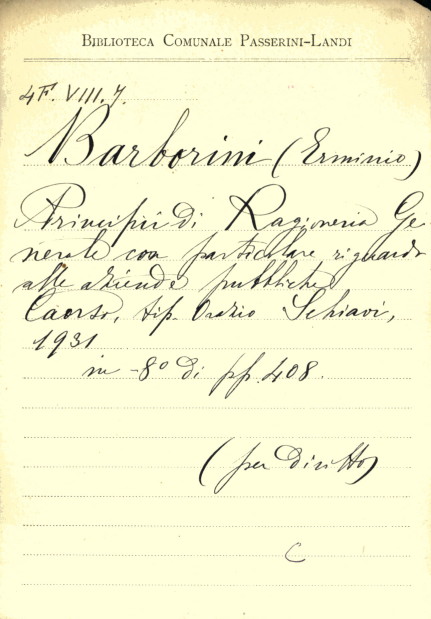 BIBLIOTECA COMUNALE PASSERINI-LANDI
4F. VIII. 7.
Barborini (Erminio)
Principii di Ragioneria Ge-
nerale con particolare riguardo
alle aziende pubbliche
Caorso, tip. Orazio Schiavi,
1931
in -8° di pp. 408.
(per diritto)
C